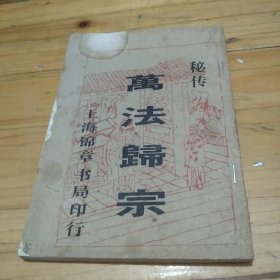 秘传
萬法歸宗
上海锦章书局印行